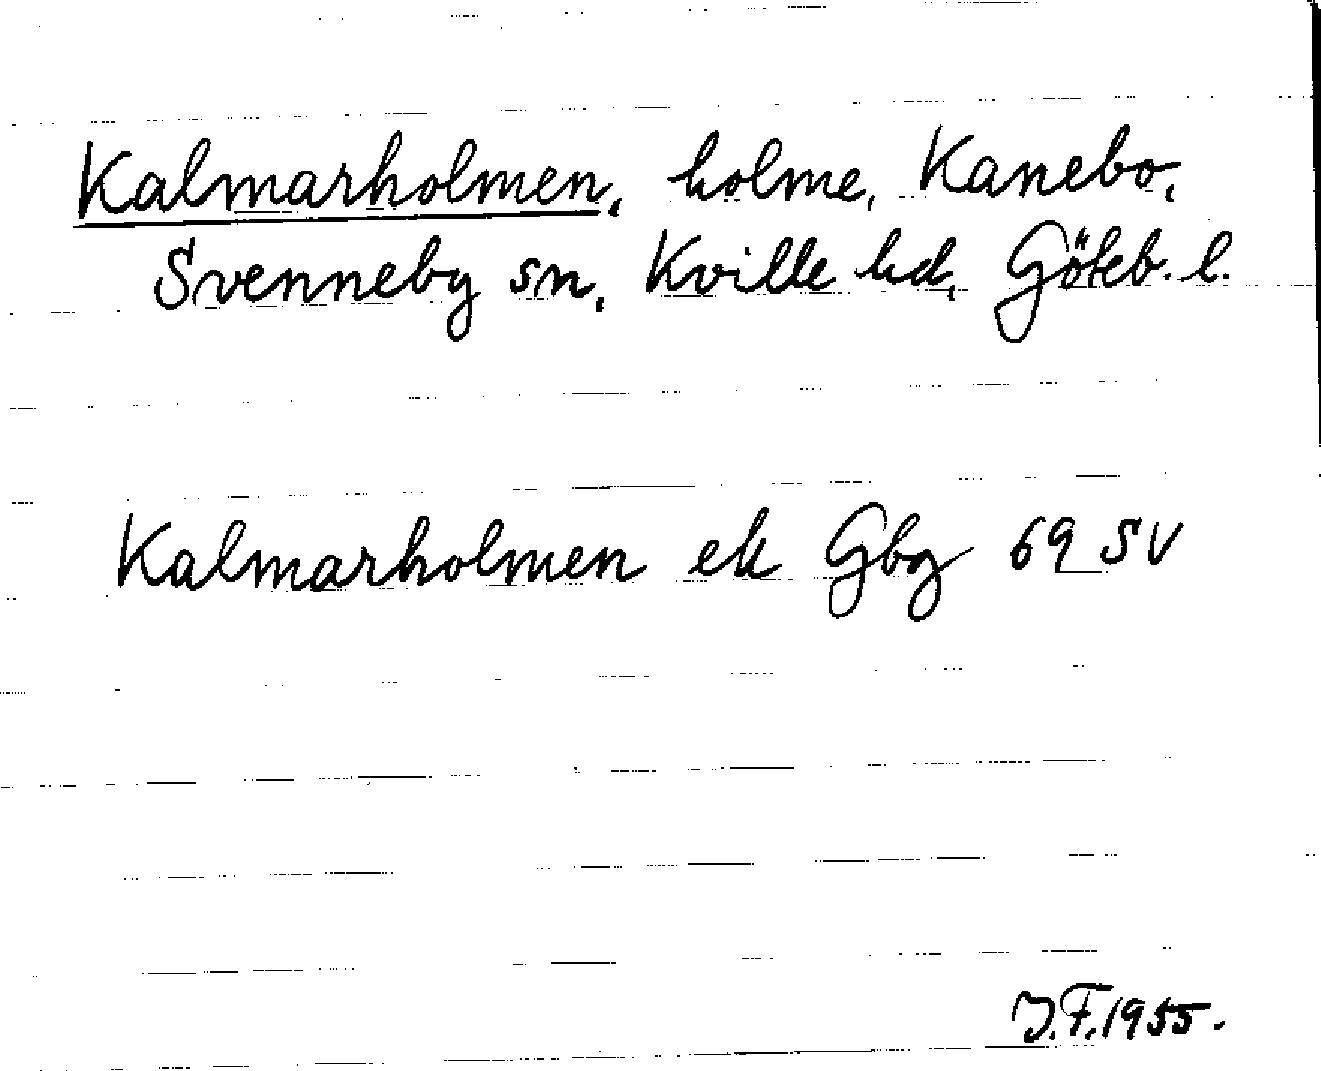 Kalmarholmen, holme, Kanebo,
Svenneby sn, Kville hd, Göteb. l.
Kalmarholmen ek Gbg 69 SV
J.F. 1955.